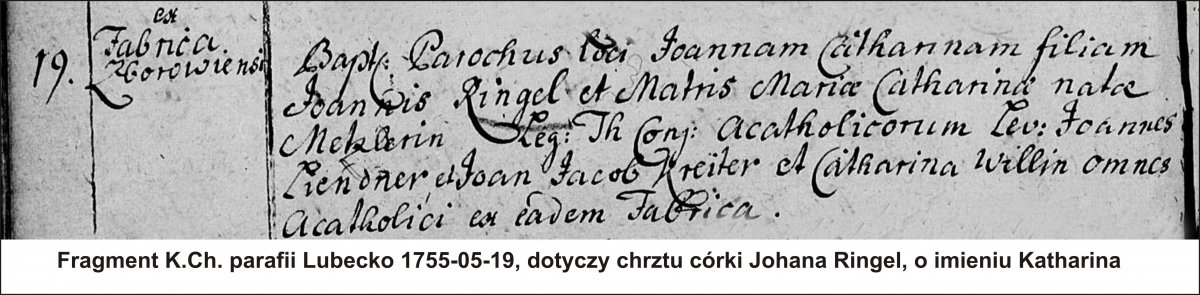 ex
19. Fabrica
Zborowiensi
Bapt: Parochus loci Joannam Catharinam filiam
Joannis Ringel et Matris Mariæ Catharinæ natæ
Metzlerin Leg: Th Conj: Acatholicorum Lev: Joannes
Liendner, et Joan Jacob Kreïter et Catharina Willin omnes
Acatholici ex eadem Fabrica.
Fragment K.Ch. parafii Lubecko 1755-05-19, dotyczy chrztu córki Johana Ringel, o imieniu Katharina